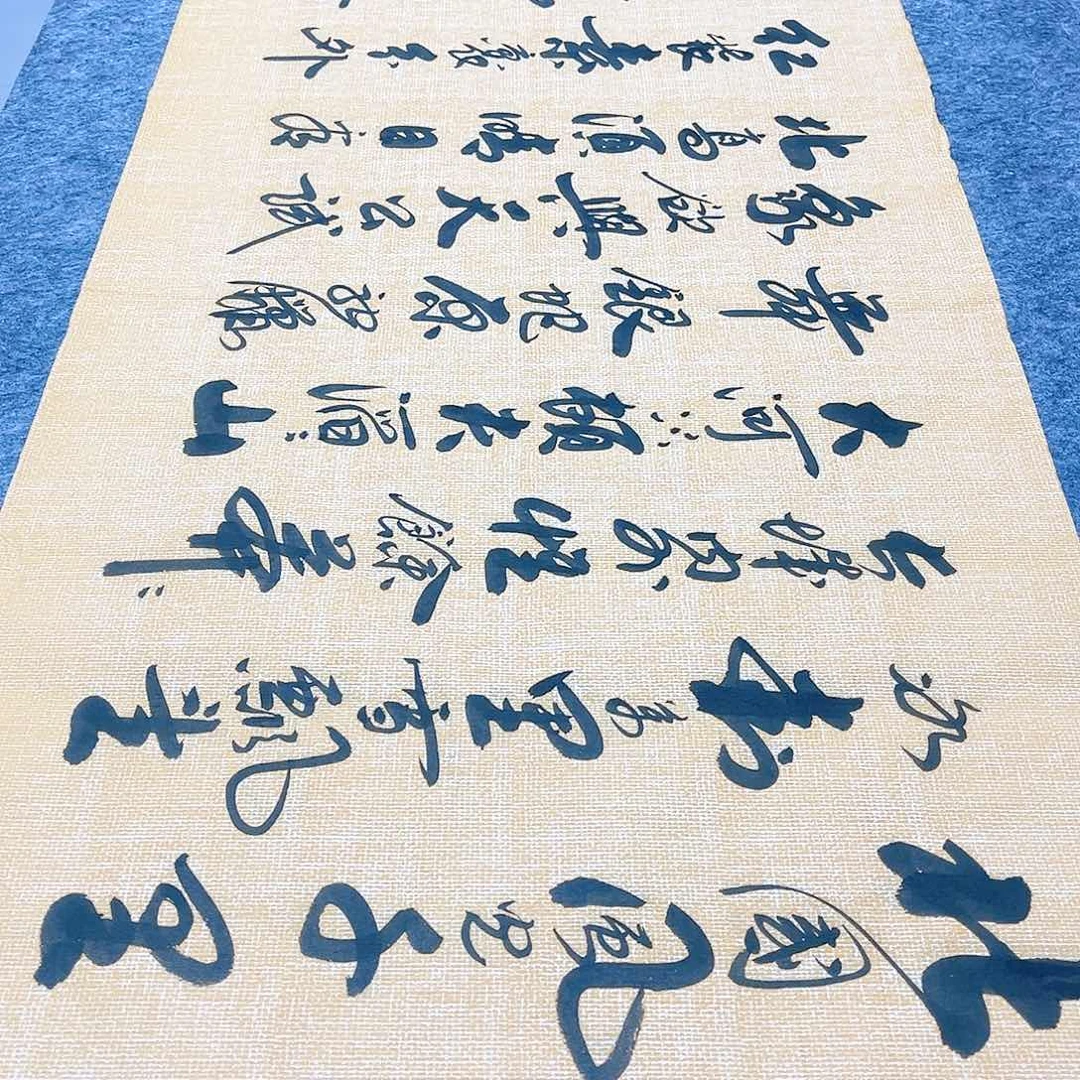 北國風光千里
冰封萬里雪飄望
長城内外惟餘莽莽
大河上下頓失滔滔山
舞銀蛇原馳蠟
象欲與天公試
比高須晴日看
紅裝素裹分外